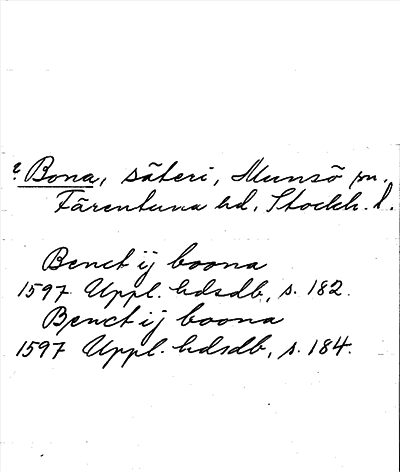 ? Bona, säteri, Munsö sn.
Färentuna hd, Stockh. l.
Benct ij boona
1597 Uppl. hdsdb, s. 182.
Benct ij boona
1597 Uppl. hdsdb, s. 184.